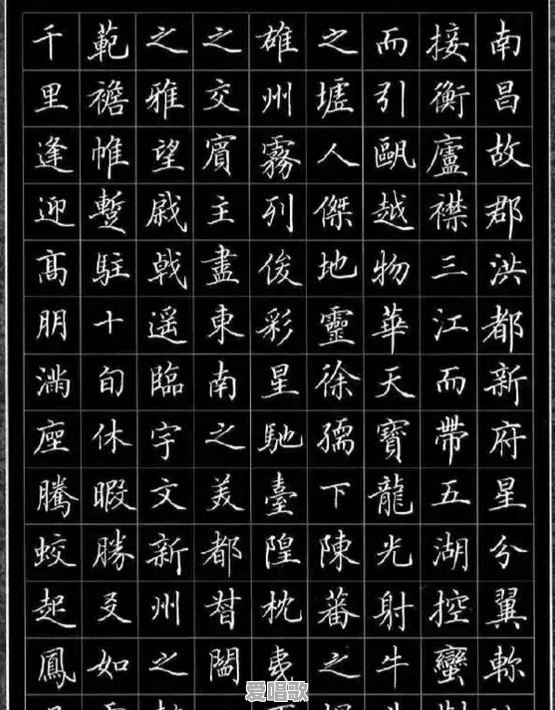 南昌故郡洪都新府星分翼軫
接衡廬襟三江而帶五湖控蠻
而引甌越物華天寶龍光射牛
之墟人傑地靈徐孺下陳蕃之
雄州霧列俊彩星馳臺隍枕夷
之交賓主盡東南之美都督閻
之雅望棨戟遥臨宇文新州之
範襜帷蹔駐十旬休暇勝友如
千里逢迎高朋滿座騰蛟起鳳
爱唱歌